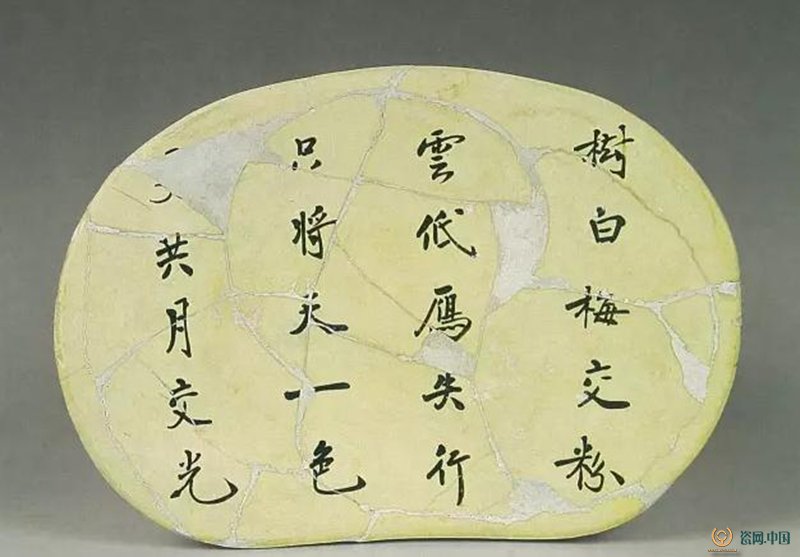 樹白梅交粉
雲低鴈失行
只將天一色
共月交光
瓷网.中国